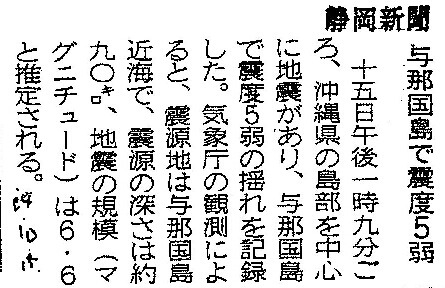 静岡新聞
与那国島で震度5弱
十五日午後一時九分ご
ろ、沖縄県の島部を中心
に地震があり、与那国島
で震度5弱の揺れを記録
した。気象庁の観測によ
ると、震源地は与那国島
近海で、震源の深さは約
九〇㌔、地震の規模(マ
グニチュード)は6・6
と推定される。